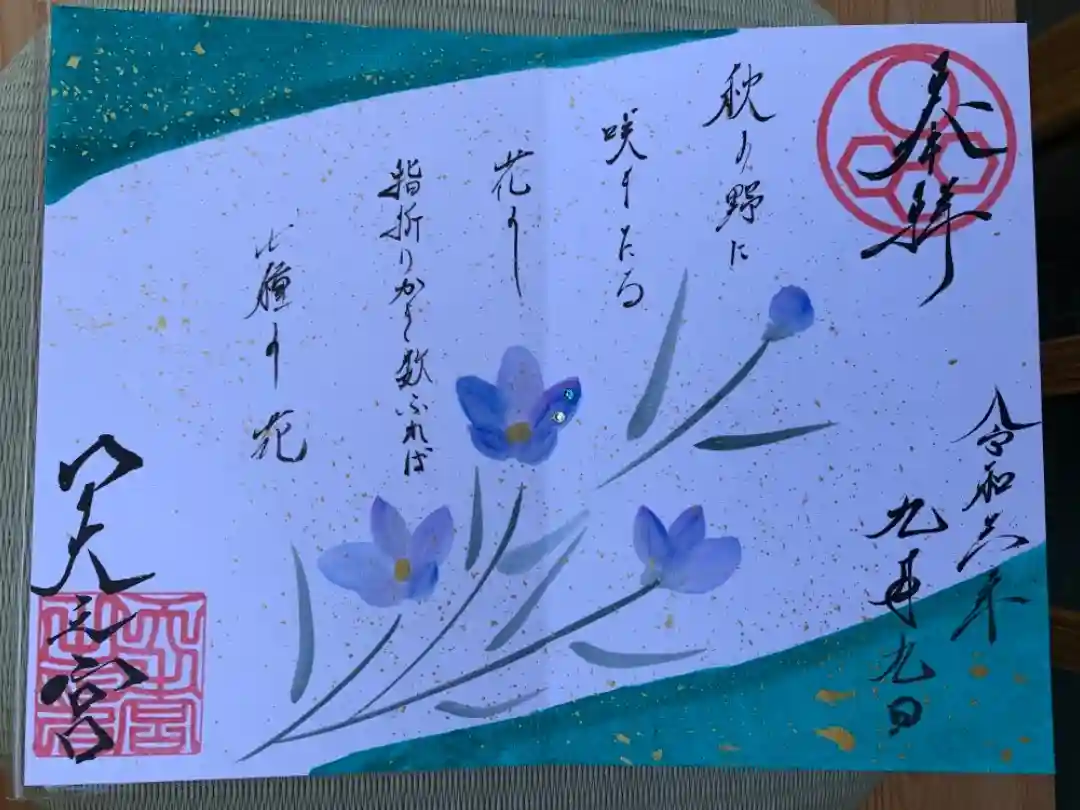 奉拝
秋の野に
咲きたる
花を
指折りかき数ふれば
七種の花
令和六年
九月九日
宮